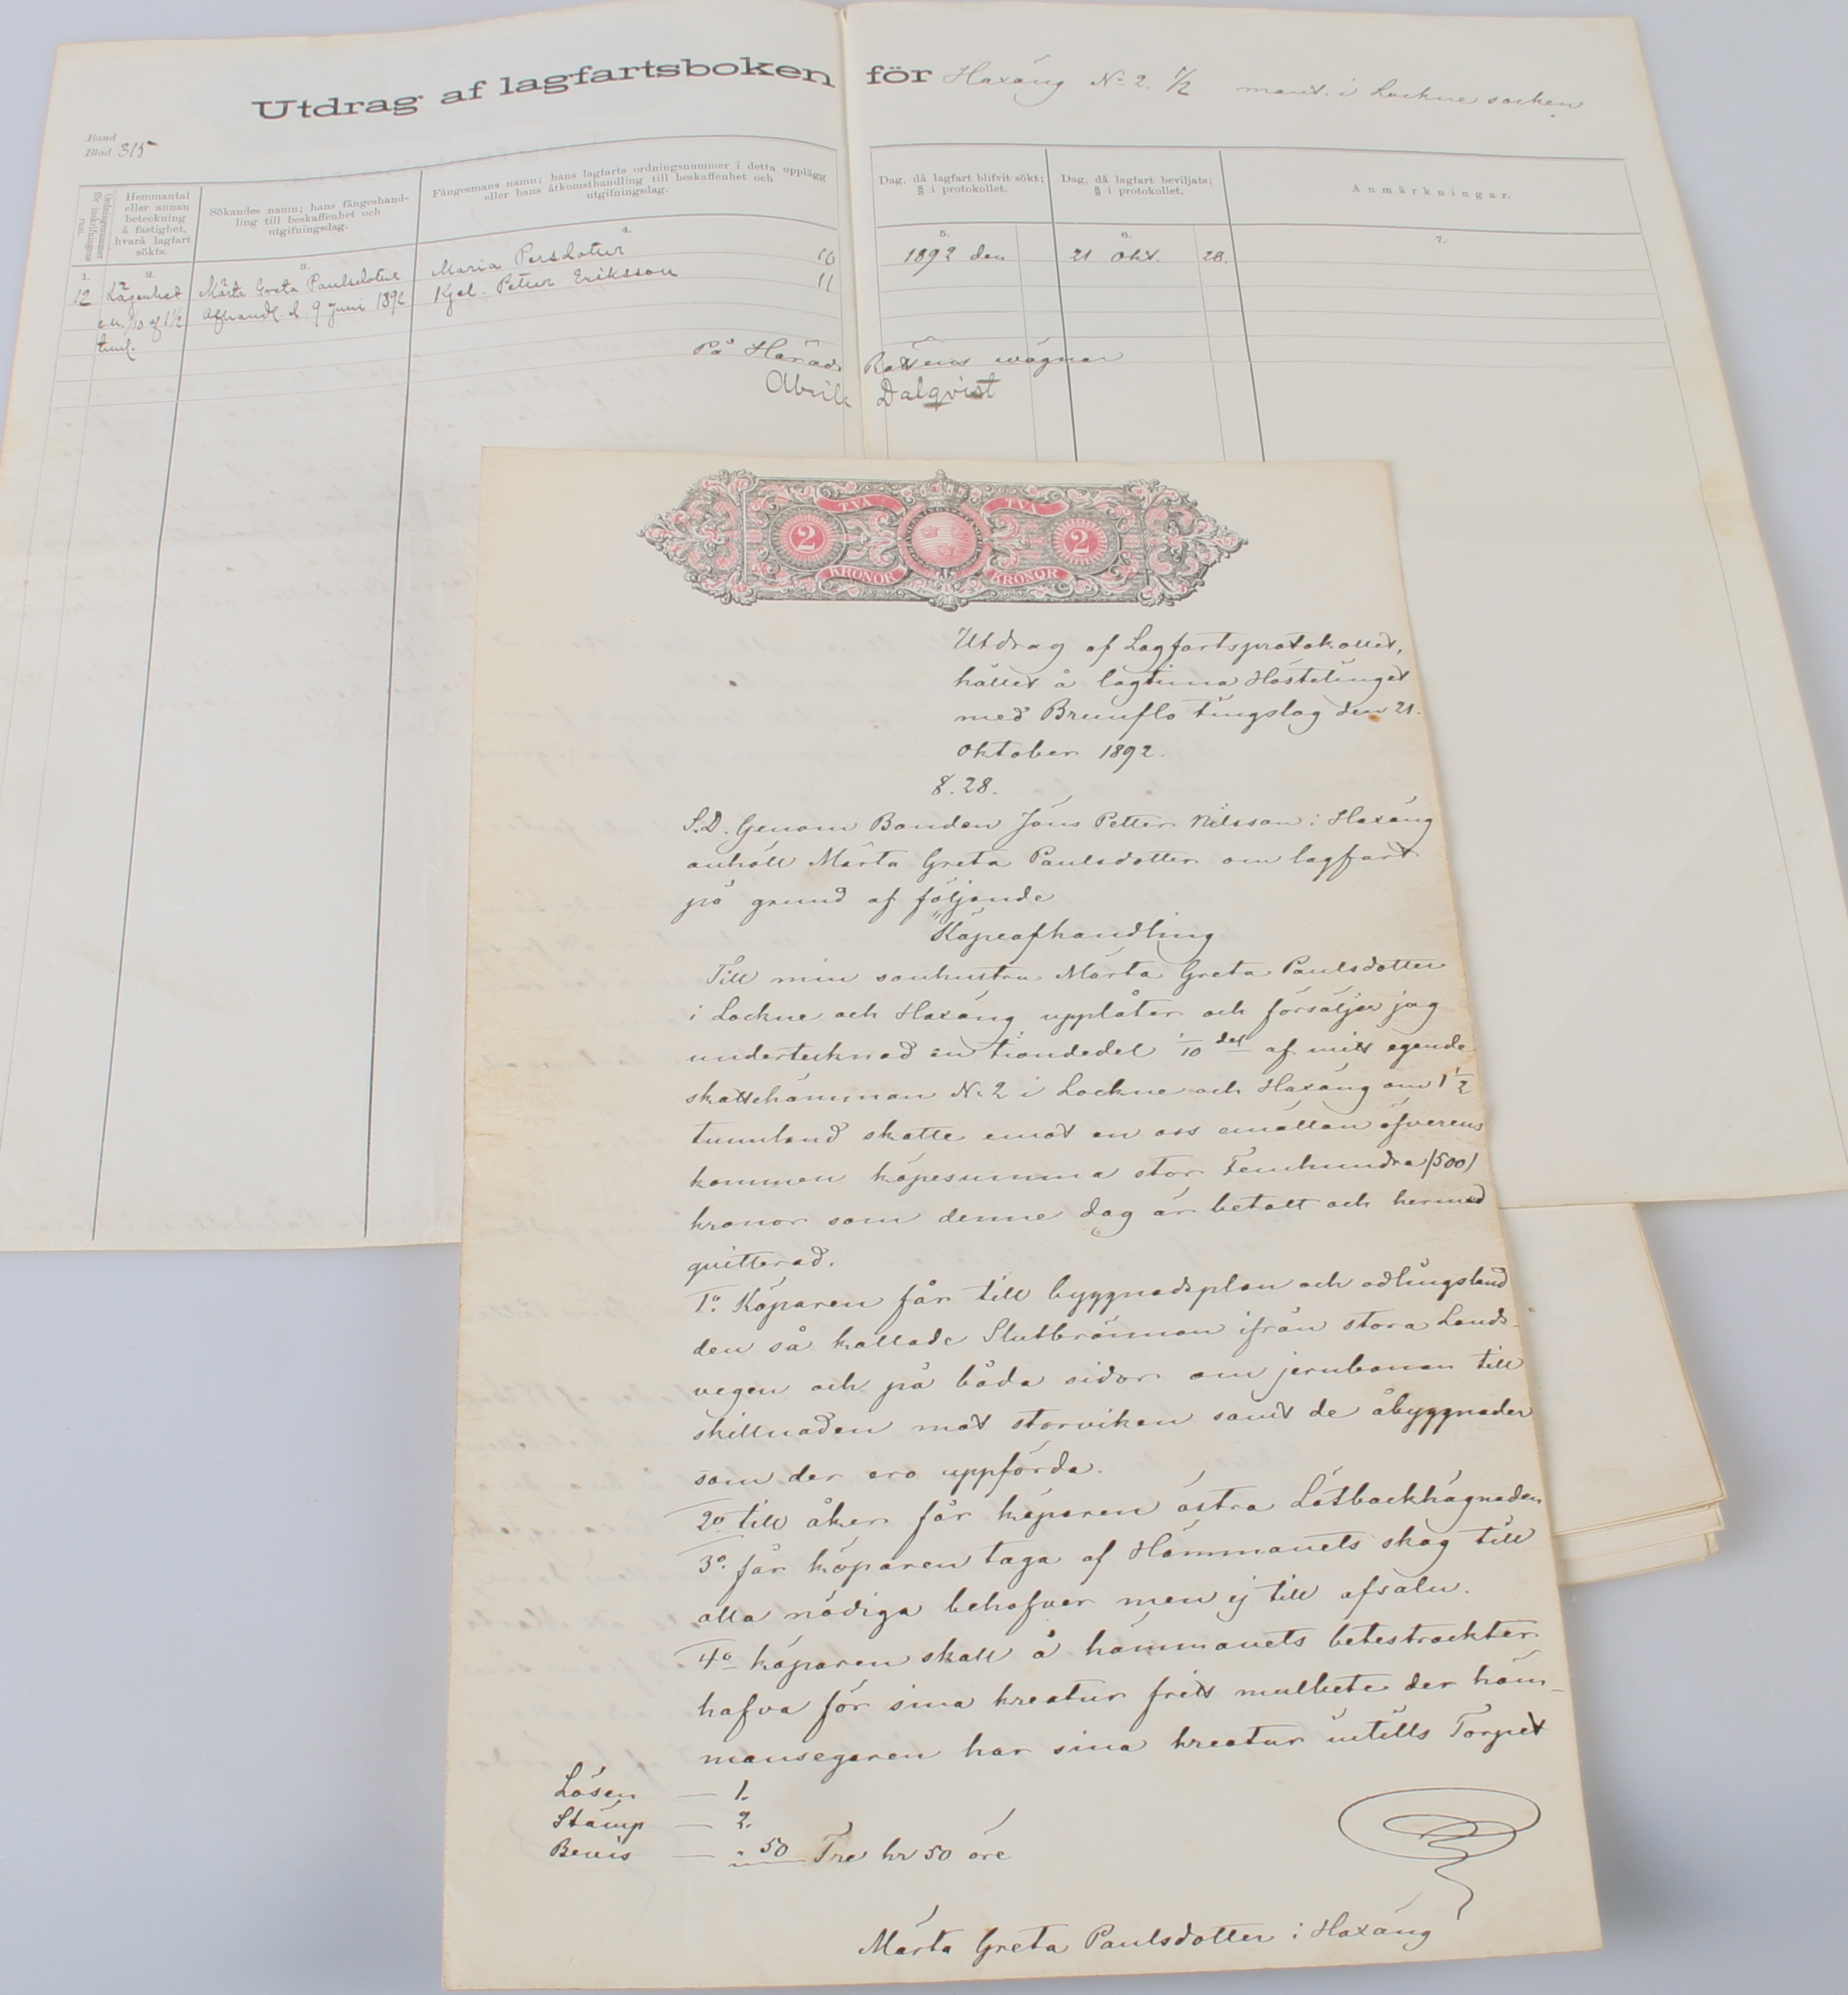 Utdrag af lagfartsboken för Haxäng No 2. 1/2 mant. i Lockne socken
Band
Blad 315
Ordningsnummer för inskrifningens rum.
Hemmantal
eller annan
beteckning
å fastighet,
hvarå lagfart
sökts.
Sökandes namn; hans fångeshand-
ling till beskaffenhet och
utgifningsdag.
Fångesmans namn; hans lagfarts ordningsnummer i detta upplägg
eller hans åtkomsthandling till beskaffenhet och
utgifningsdag.
Dag, då lagfart blifvit sökt;
§ i protokollet.
Dag, då lagfart beviljats;
§ i protokollet.
Anmärkningar.
1. 2. 3. 4. 5. 6. 7.
12 Lägenhet Märta Greta Paulsdotter Maria Persdotter 10 1892 den 21 Okt. 28.
1/10 af 1 1/2 Afhandl. d. 9 Juni 1892 Petter Eriksson 11
tunl.
På Härads Rättens wägnar
Dalqvist
TVÅ TVÅ
2 2
KRONOR KRONOR
Utdrag af Lagfartsprotokollet,
hållet å lagtima Höstetinget
med Brunflo tingslag den 21.
Oktober 1892.
§. 28.
S.D. Genom Bonden Jöns Petter Nilsson i Haxäng
anhöll Märta Greta Paulsdotter om lagfart
på grund af följande
"Köpeafhandling
Till min sonhustru Märta Greta Paulsdotter
i Lockne och Haxäng upplåter och försäljer jag
undertecknad en tiondedel 1/10 del af mitt egande
skattehämman No 2 i Lockne och Haxäng om 1 1/2
tunnland skatte emot en oss emällan öfverens
kommen köpesumma stor Femhundra (500)
kronor som denne dag är betalt och hermed
quitterad.
1o. Köparen får till byggnadsplan och odlingsland
den så kallade Slutbrännan ifrån stora Lands-
vegen och på båda sidor om jernbanan till
skillnaden mot storviken samt de åbyggnader
som der ero uppförda.
2o till åker får köparen östra Lötbackhägnaden
3o. får köparen taga af Hämmanets skog till
alla nödiga behofver men ej till afsalu.
4o köparen skall å hämmanets betestrackter
hafva för sina kreatur fritt mulbete der häm-
mansegaren har sina kreatur intills Torpet
Lösen — 1.
Stämp — 2.
Bevis — " 50 Tre kr 50 öre
Märta Greta Paulsdotter i Haxäng